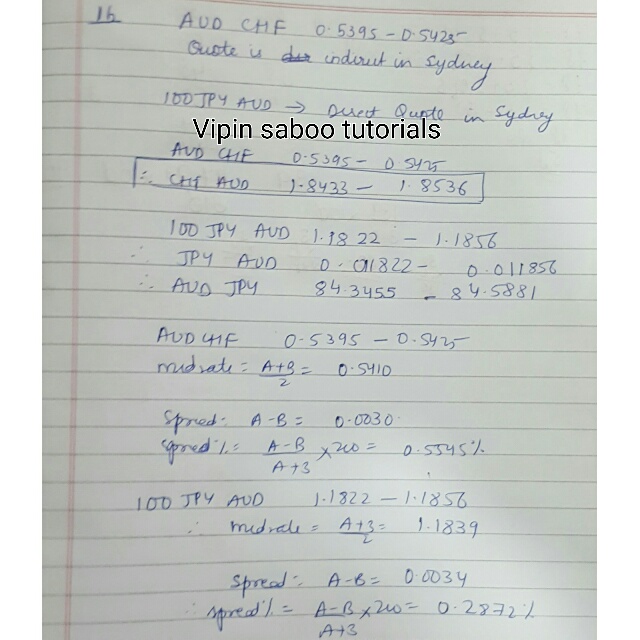 16 AUD CHF 0.5395 - 0.5425
Quote is indirect in Sydney
100 JPY AUD → Direct Quote in Sydney
Vipin saboo tutorials
AUD CHF 0.5395 - 0.5425
∴ CHF AUD 1.8433 - 1.8536
100 JPY AUD 1.1822 - 1.1856
∴ JPY AUD 0.011822 - 0.011856
∴ AUD JPY 84.3455 - 84.5881
AUD CHF 0.5395 - 0.5425
midrate = A+B/2 = 0.5410
Spread = A-B = 0.0030
spread % = A-B/A+B × 200 = 0.5545%
100 JPY AUD 1.1822 - 1.1856
∴ midrate = A+B/2 = 1.1839
Spread = A-B = 0.0034
∴ spread % = A-B/A+B × 200 = 0.2872%